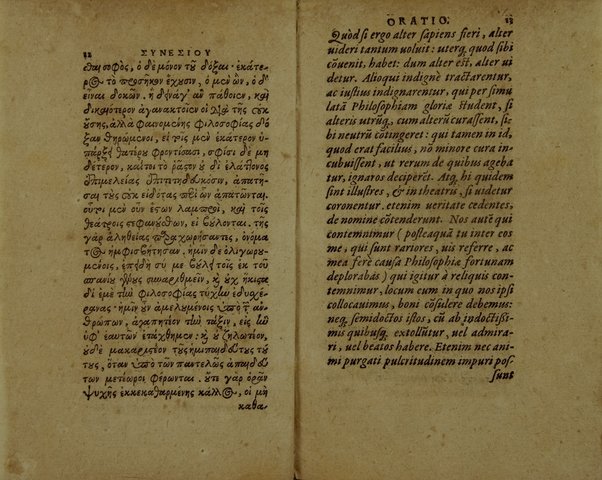 12 ΣΥΝΕΣΙΟΥ
θαι σοφὸς, ὁ δὲ μόνον τῦ δόξαι· ἑκάτε-
ρ@ τὸ προσῆκον ἔχουσιν, ὁ μὲν ὢν, ὁ δὲ
εἶναι δοκῶν. ἢ δείν' ἂν πάθοιεν, καὶ
δικαιότερον ἀγανακτοῖεν οἱ
ἀλλὰ φαινομένης φιλοσοφίας δό
ξαν θηρώμενοι, εἴ τις μὲν ἑκάτερον ὑ-
πάρξῃ θατέρου φροντίσασι, σφίσι δὲ μη
δέτερον, καίτοι τὸ ῥᾷστον οὐ δι' ἐλάττονος
ἐπιμελείας ἐπιτετηδεύκασιν, ἀπατῆ-
σαι τοὺς οὐκ εἰδότας περὶ ὧν ἀπατῶνται.
οὗτοι μὲν οὖν ἔστων λαμπροὶ, καὶ τοῖς
θεάτροις στεφανούσθων, εἰ βούλονται. τῆς
γὰρ ἀληθείας παραχωρήσαντες, ὀνόμα
τος ἠμφισβήτησαν. ἡμῖν δὲ ὀλιγωρου-
μένοις, ἐπειδή σὺ με βούλῃ τοῖς ἐκ τοῦ
σπανίου γένους συναριθμεῖν, καὶ οὐχ ἥκιστα
δι' ἐμὲ τὴν φιλοσοφίας τύχην ἐδυσχέ-
ρανας· ἡμῖν οὖν ἀμελουμένοις ὑπὸ τῶν ἀν-
θρώπων, ἀγαπητέον τὴν τάξιν, εἰς ἣν
ὑφ' ἑαυτῶν ἐτάχθημεν· καὶ οὐ ζηλωτέον,
οὐδὲ μακαριστέον τοὺς ἡμιπαιδεύτους τού-
τους, ὅταν ὑπὸ τῶν παντελῶς ἀπαιδεύ
των μετέωροι φέρωνται. οὔτε γὰρ ὁρᾶν
ψυχῆς ἐκκεκαθαρμένης κάλλ@, οἱ μὴ
καθα-
ORATIO. 13
Quod si ergo alter sapiens fieri, alter
uideri tantum uoluit: uterq; quod sibi
cōuenit, habet: dum alter est, alter ui
detur. Alioqui indignè tractarentur,
ac iustius indignarentur, qui per simu
latā Philosophiam gloriæ student, si
alteris utrūq;, cum alterū curassent, si-
bi neutrū cōtingeret: qui tamen in id,
quod erat facilius, nō minore cura in-
cubuissent, ut rerum de quibus ageba
tur, ignaros deciperēt. Atq; hi quidem
sint illustres, & in theatris, si uidetur
coronentur. etenim ueritate cedentes,
de nomine cōtenderunt. Nos autē qui
contemnimur (posteaquā tu inter eos
me, qui sunt rariores, uis referre, ac
mea ferè causa Philosophiæ fortunam
deplorabas) qui igitur à reliquis con-
temnimur, locum eum in quo nos ipsi
collocauimus, boni cōsulere debemus:
neq; semidoctos istos, cū ab indoctissi-
mis quibusq; extollūtur, uel admira-
ri, uel beatos habere. Etenim nec ani-
mi purgati pulcritudinem impuri pos-
sunt